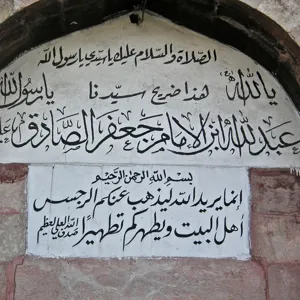 الصلاة و السلام عليك يا سيدي يا رسول الله
يا الله هذا ضريح سيدنا يا رسول الله
عبد الله ابن الامام جعفر الصادق
بسم الله الرحمن الرحيم
انما يريد الله ليذهب عنكم الرجس
أهل البيت ويطهركم تطهيرا
صدق الله العلي العظيم